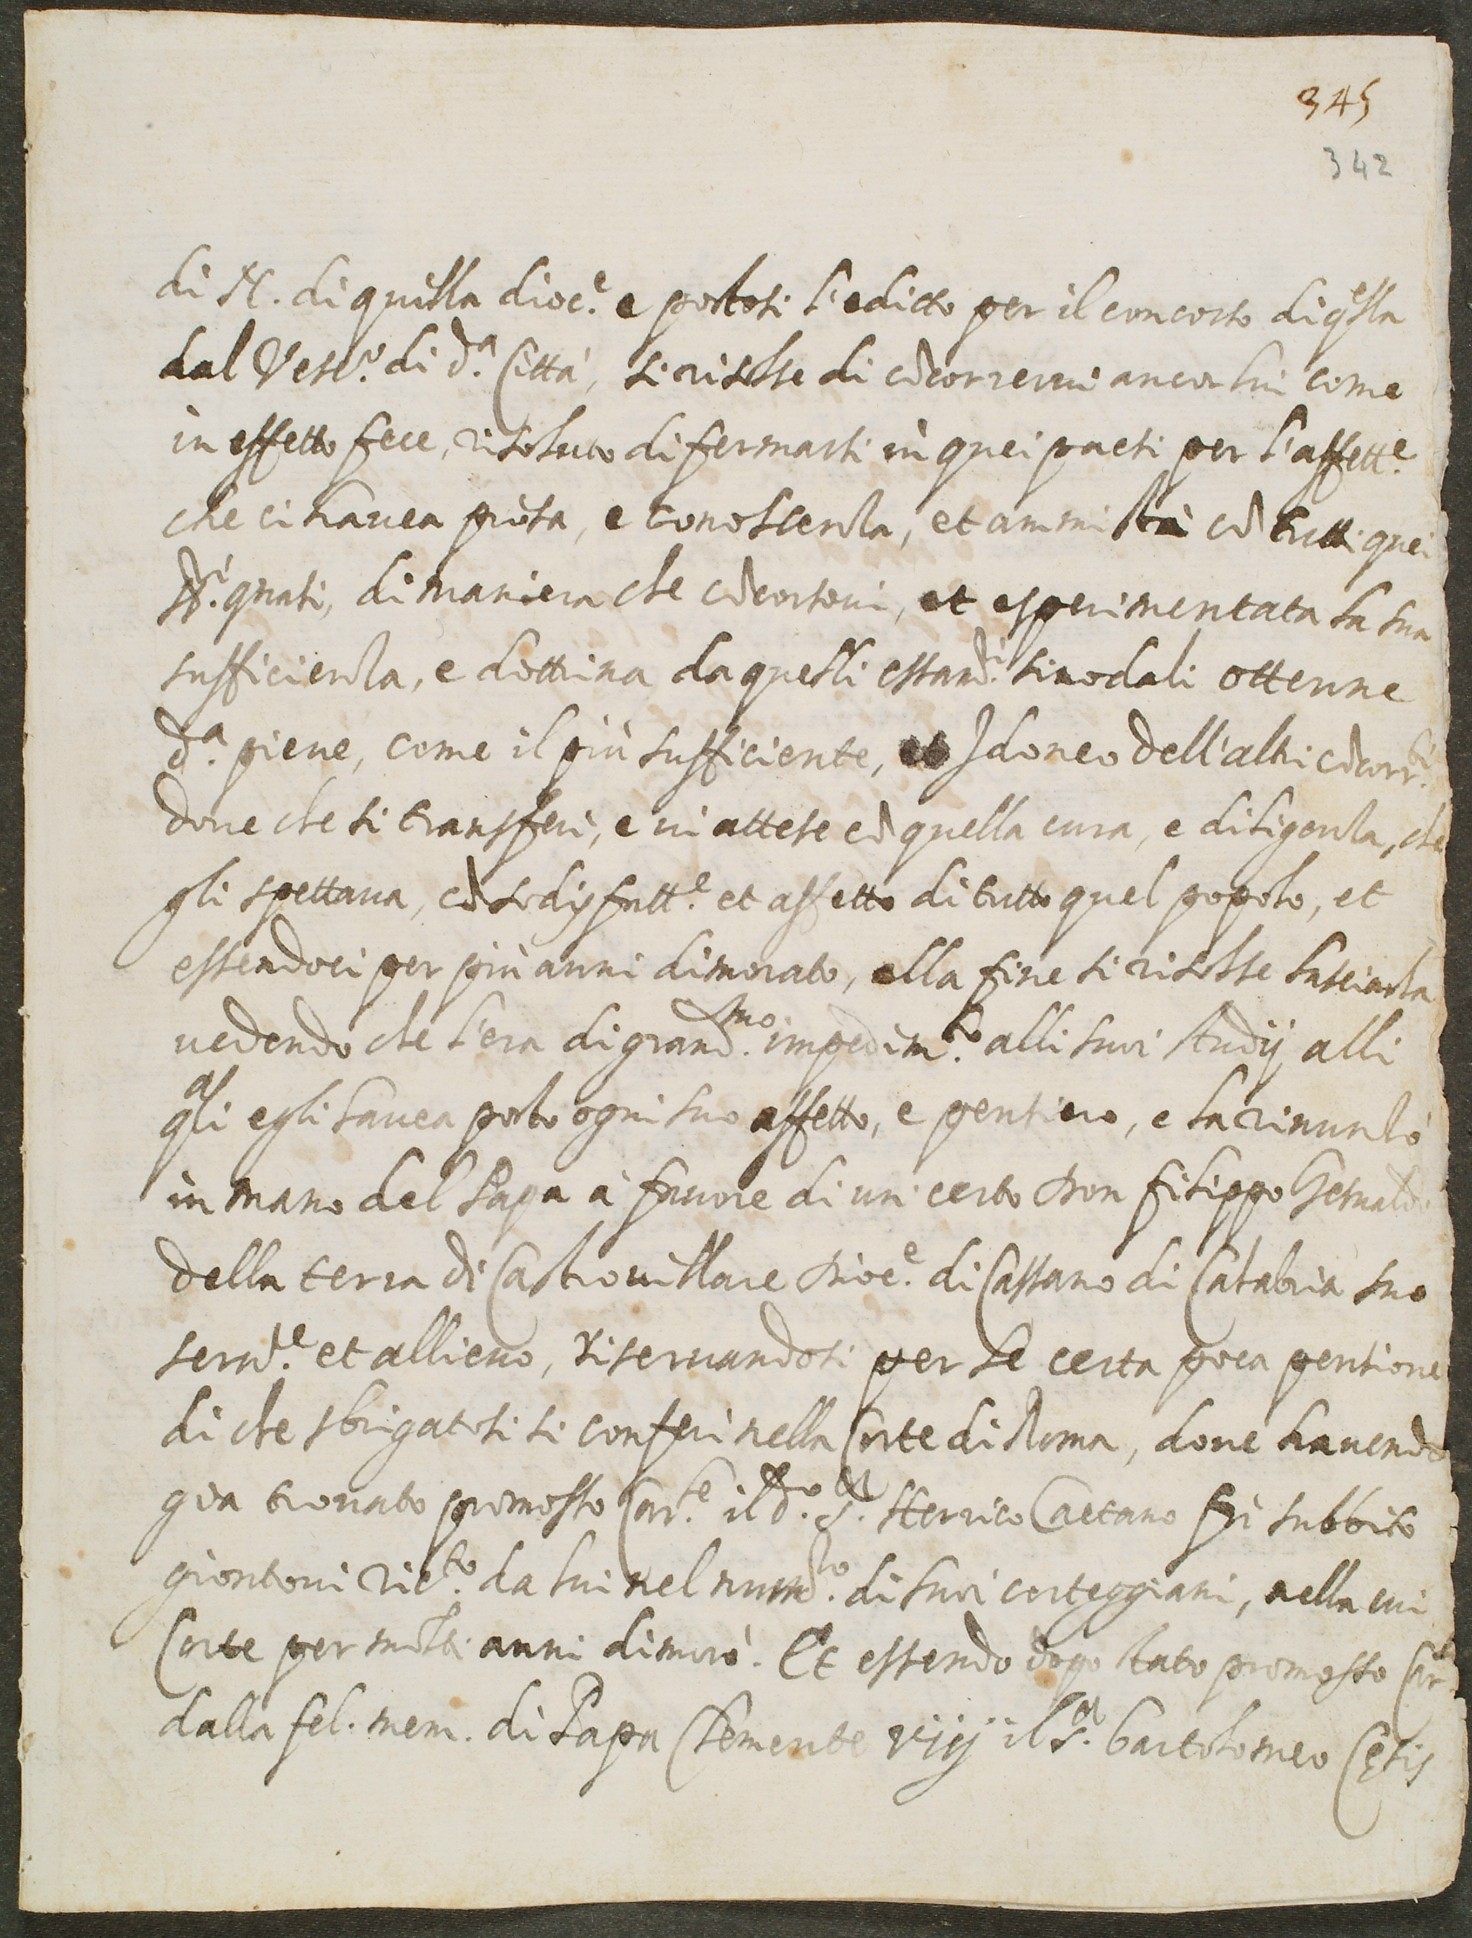 345
342
di N. di quella dioc.e e postosi l'editto per il concorso di q.esta
dal Vesc.o di d.a Città, si risolse di cõcorrervi ancor lui come
in effetto fece, risoluto di fermarsi in quei paesi per l'affett.e
che ci havea presa, e conoscenza, et ammistà cõ tutti quei
di maniera che cõcorsovi, et esperimentata la sua
sufficienza, e dottrina da quelli essam.ri sinodali ottenne
d.a pieve, come il più sufficiente, et Idoneo dell'altri cõcorr.ti
dove che si transferì, e vi attese cõ quella cura, e diligenza, che
gli spettava, cõ sodisfatt.e et affetto di tutto quel popolo, et
essendoci per più anni dimorato, alla fine si risolse lasciarla
vedendo che l'era di grand.mo impedim.to alli suoi studij alli
q.ali egli havea posto ogni suo affetto, e pensiero, e la rinunzò
in mano del Papa à favore di un' certo Don Filippo
della terra di Castrovillare Dioc.e di Cassano di Calabria suo
serv.e et allievo, riservandosi per se certa poca pensione
di che sbrigatosi si conferì nella Corte di Roma, dove havendo
gia trovato promosso Car.le il d.o S.r Herrico Caetano fù subbito
giontovi ric.to da lui nel num.ro di suoi corteggiani, nella cui
Corte per molti anni dimorò. Et essendo dopo stato promosso Car.le
dalla fel. mem. di Papa Clemente viij il S.r Bartolomeo Cesis